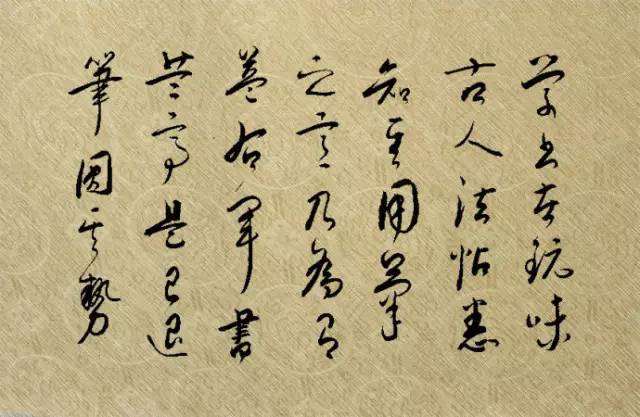 學書在玩味
古人法帖悉
知其用筆
之意乃為有
益右軍書
蘭亭是已退
筆因其勢